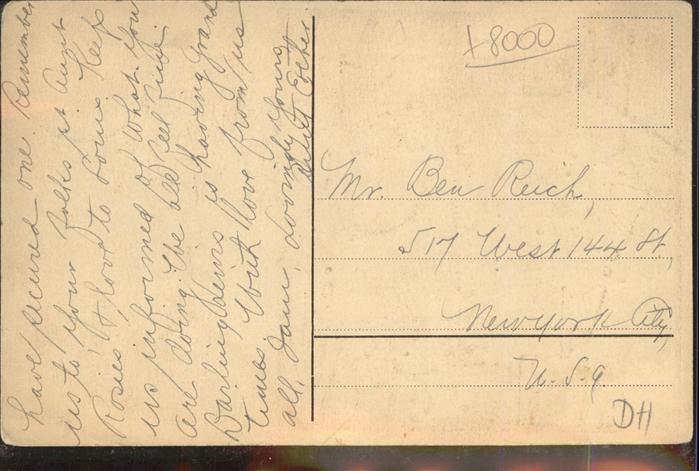 have secured one. Remember
us to your folks at Aunt
Rosies & love to some. Keep
us informed of what you
are doing. We all feel fine.
Darling is having grand
times. With love from us
all, I am, lovingly yours,
Mr. Ben Reich,
517 West 144 St,
New York City,
U.S.a.
+8000
DH